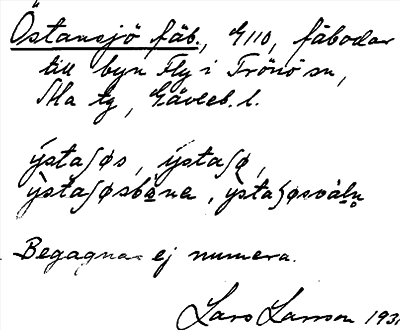 Östansjö fäb., G110, fäbodar
till byn Fly i Trönö sn,
Ala tg, Gävleb. l.
ýstaʃøs, ýstaʃø,
ỳstaʃøsbɷna, ỳstaʃøsvàln
Begagnas ej numera.
Lars Larsson 193